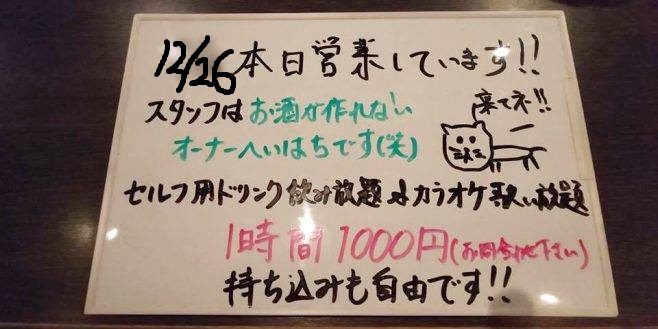 12/26 本日営業しています!!
スタッフは お酒が作れない
来てネ!!
オーナーへいはちです(笑)
セルフ用ドリンク飲み放題&カラオケ歌い放題
1時間1000円(お問合わせ下さい)
持ち込みも自由です!!